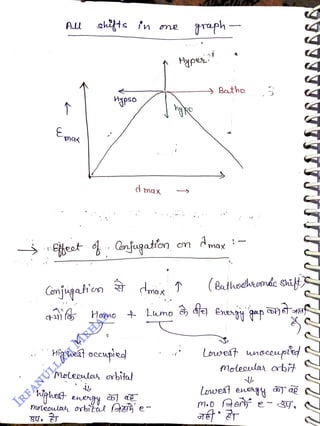 All shifts in one graph —
Hyper
Hypso
Batho
hypo
↑
E max
d max →
→ Effect of Conjugation on λmax :-
Conjugation से dmax ↑ (Bathochromic Shift)
क्योंकि Homo + Lumo के बीच Energy gap
Highest occupied
Molecular orbital
⇓
highest energy का वह
molecular orbital जिसमें e-
Lowest unoccupied
Molecular orbit
⇓
Lowest energy का वह
M.O जिसमें e-
नहीं हो
IRFANULLAH MEHAR